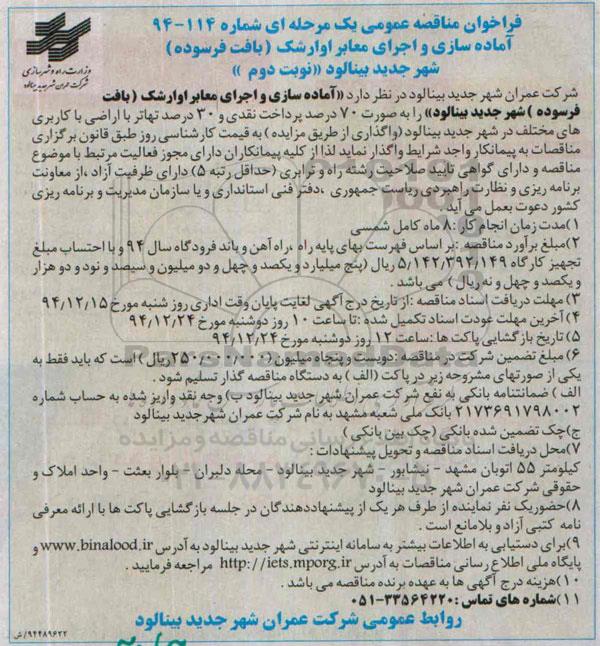 فراخوان مناقصه عمومی یک مرحله ای شماره ۱۱۴-۹۴
آماده سازی و اجرای معابر اوارشک ( بافت فرسوده )
شهر جدید بینالود «نوبت دوم »
وزارت راه و شهرسازی
شرکت عمران شهر جدید بینالود
شرکت عمران شهر جدید بینالود در نظر دارد «آماده سازی و اجرای معابر اوارشک ( بافت
فرسوده ) شهر جدید بینالود» را به صورت ۷۰ درصد پرداخت نقدی و ۳۰ درصد تهاتر با اراضی با کاربری
های مختلف در شهر جدید بینالود (واگذاری از طریق مزایده ) به قیمت کارشناسی روز طبق قانون برگزاری
مناقصات به پیمانکار واجد شرایط واگذار نماید لذا از کلیه پیمانکاران دارای مجوز فعالیت مرتبط با موضوع
مناقصه و دارای گواهی تایید صلاحیت رشته راه و ترابری (حداقل رتبه ۵) دارای ظرفیت آزاد ،از معاونت
برنامه ریزی و نظارت راهبردی ریاست جمهوری ،دفتر فنی استانداری و یا سازمان مدیریت و برنامه ریزی
کشور دعوت بعمل می آید .
۱)مدت زمان انجام کار :۸ ماه کامل شمسی
۲)مبلغ برآورد مناقصه :بر اساس فهرست بهای پایه راه ،راه آهن و باند فرودگاه سال ۹۴ و با احتساب مبلغ
تجهیز کارگاه ۵٫۱۴۲٫۳۹۲٫۱۴۹ ریال (پنج میلیارد و یکصد و چهل و دو میلیون و سیصد و نود و دو هزار
و یکصد و چهل و نه ریال ) می باشد .
۳) مهلت دریافت اسناد مناقصه :از تاریخ درج آگهی لغایت پایان وقت اداری روز شنبه مورخ ۹۴٫۱۲٫۱۵
۴) آخرین مهلت عودت اسناد تکمیل شده :تا ساعت ۱۰ روز دوشنبه مورخ ۹۴٫۱۲٫۲۴
۵) تاریخ بازگشایی پاکت ها :ساعت ۱۲ روز دوشنبه مورخ ۹۴٫۱۲٫۲۴
۶) مبلغ تضمین شرکت در مناقصه :دویست و پنجاه میلیون (۲۵۰٫۰۰۰٫۰۰۰ ریال ) است که باید فقط به
یکی از صورتهای مشروحه زیر در پاکت (الف ) به دستگاه مناقصه گذار تسلیم شود .
الف ) ضمانتنامه بانکی به نفع شرکت عمران شهر جدید بینالود ب) وجه نقد واریز شده به حساب شماره
۲۱۷۳۶۹۱۷۹۸۰۰۲ بانک ملی شعبه مشهد به نام شرکت عمران شهر جدید بینالود
ج)چک تضمین شده بانکی (چک بین بانکی )
۷)محل دریافت اسناد مناقصه و تحویل پیشنهادات :
کیلومتر ۵۵ اتوبان مشهد - نیشابور - شهر جدید بینالود - محله دلیران - بلوار بعثت - واحد املاک و
حقوقی شرکت عمران شهر جدید بینالود
۸)حضور یک نفر نماینده از طرف هر یک از پیشنهاددهندگان در جلسه بازگشایی پاکت ها با ارائه معرفی
نامه کتبی آزاد و بلامانع است .
۹)برای دستیابی به اطلاعات بیشتر به سامانه اینترنتی شهر جدید بینالود به آدرس www.binalood.ir و
پایگاه ملی اطلاع رسانی مناقصات به آدرس http://iets.mporg.ir مراجعه فرمایید .
۱۰)هزینه درج آگهی ها به عهده برنده مناقصه می باشد .
۱۱)شماره های تماس :۳۳۵۶۴۲۲۰-۰۵۱
روابط عمومی شرکت عمران شهر جدید بینالود
۹۴۴۸۹۶۲۲/ش